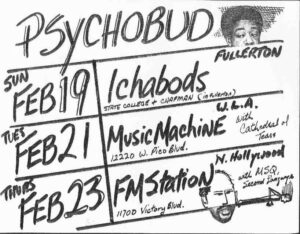 PSYCHOBUD
FULLERTON
SUN
FEB 19
Ichabods
STATE COLLEGE + CHAPMAN (in Fullerton)
TUES
FEB 21
W.L.A.
Music Machine
12220 W. Pico Blvd.
with
Cathedral of
Tears
THURS
FEB 23
N. Hollywood
FM Station
11700 Victory Blvd.
with MSQ,
Second Language